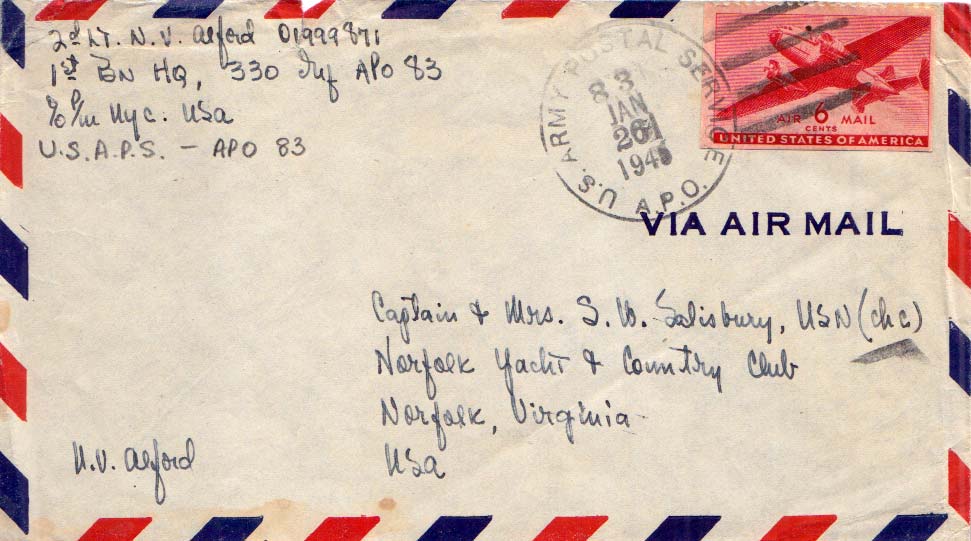 2nd Lt. N. V. Alford 01999871
1st BN HQ, 330 Inf APO 83
c/o P/m NYC. USA
U.S.A.P.S. - APO 83
U.S. ARMY POSTAL SERVICE
83
JAN
26
1945
A.P.O.
AIR 6 MAIL
CENTS
UNITED STATES OF AMERICA
VIA AIR MAIL
Captain & Mrs. S. W. Salisbury, USN (chc)
Norfolk Yacht & Country Club
Norfolk, Virginia
USA
N.V. Alford